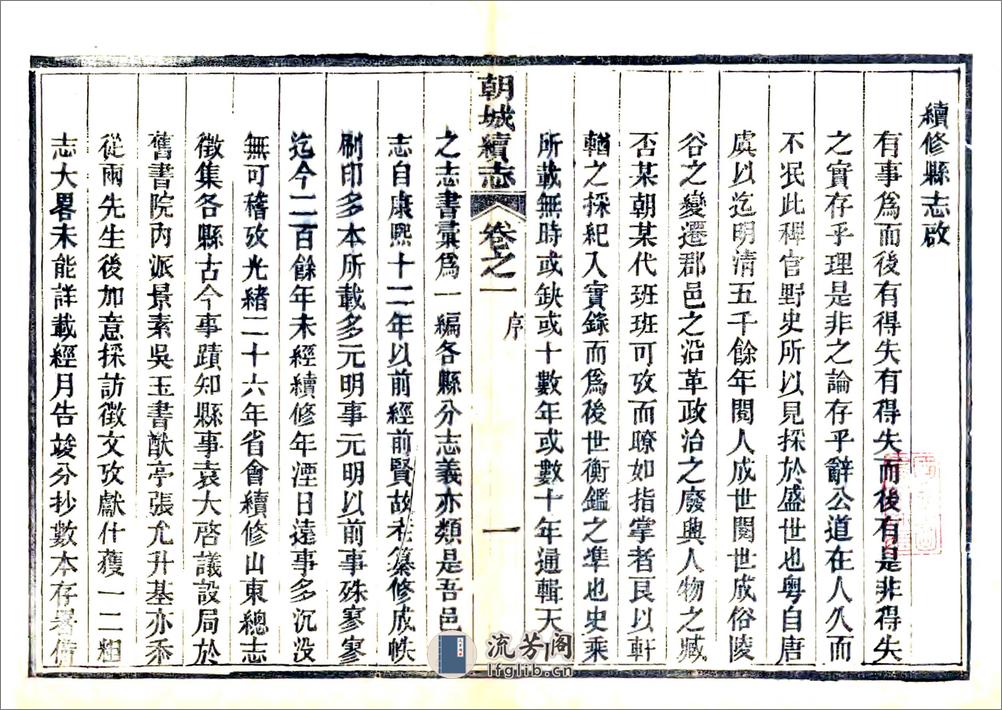 續修縣志啟
有事爲而後有得失有得失而後有是非得失
之實存乎理是非之論存乎辭公道在人久而
不泯此稗官野史所以見採於盛世也粤自唐
虞以迄明清五千餘年閱人成世閱世成俗陵
谷之變遷郡邑之沿革政治之廢興人物之臧
否某朝某代班班可攷而瞭如指掌者良以軒
輶之採紀入實錄而爲後世衡鑑之準也史乘
所載無時或缺或十數年或數十年通輯天
朝城續志 卷之一 序 一
之志書彙爲一編各縣分志義亦類是吾邑
志自康熙十二年以前經前賢故 纂修成帙
刷印多本所載多元明事元明以前事殊寥寥
迄今二百餘年未經續修年湮日遠事多沉没
無可稽攷光緒二十六年省會續修山東總志
徵集各縣古今事蹟知縣事袁大啓議設局於
舊書院內派景素吳玉書猷亭張允升基亦忝
從兩先生後加意採訪徵文攷獻什獲一二粗
志大畧未能詳載經月告竣分抄數本存署備
流芳阁
lfglib.cn